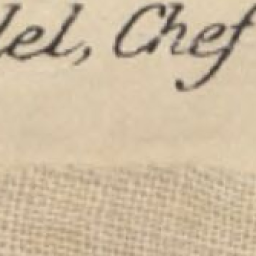 del, Chef